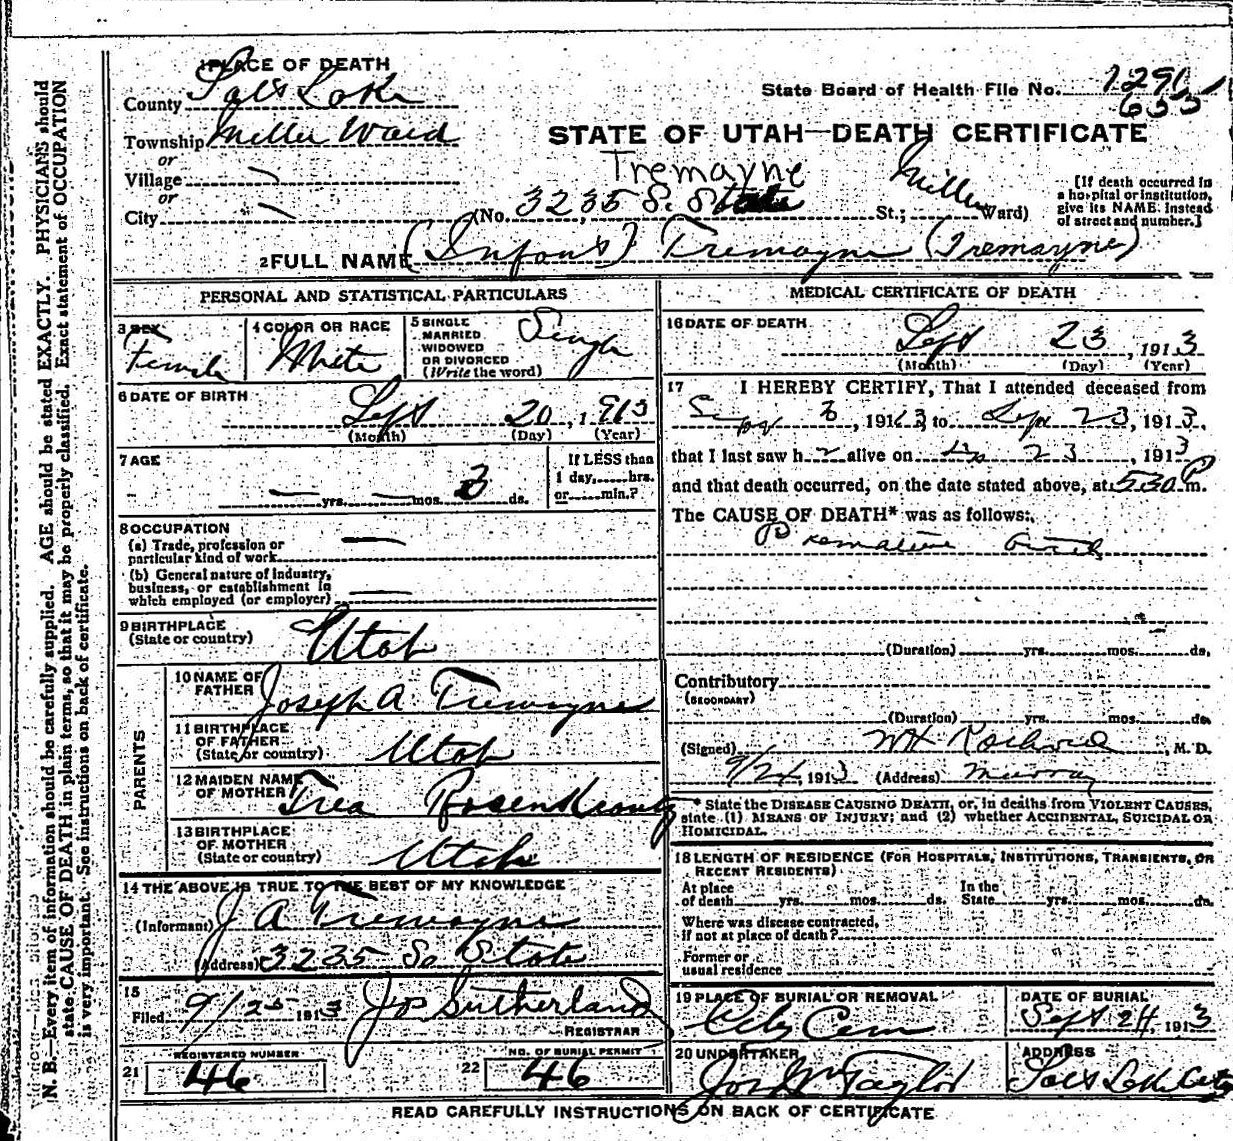 1 PLACE OF DEATH
County Salt Lake
Township Miller Ward
or
Village —
or
City —
State Board of Health File No. 1291
655
STATE OF UTAH—DEATH CERTIFICATE
Tremayne
(No. 3235 So. State St.; Miller Ward)
[If death occurred in a hospital or institution, give its NAME. instead of street and number.]
2 FULL NAME (Infant) Tremayne (Tremayne)
PERSONAL AND STATISTICAL PARTICULARS
3 SEX
Female
4 COLOR OR RACE
White
5 SINGLE
MARRIED
WIDOWED
OR DIVORCED
(Write the word)
Single
6 DATE OF BIRTH
Sept 20, 1913
(Month) (Day) (Year)
7 AGE
— yrs. — mos. 3 ds.
If LESS than
1 day,......hrs.
or......min.?
8 OCCUPATION
(a) Trade, profession or
particular kind of work —
(b) General nature of industry,
business, or establishment in
which employed (or employer) —
9 BIRTHPLACE
(State or country)
Utah
PARENTS
10 NAME OF
FATHER
Joseph A. Tremayne
11 BIRTHPLACE
OF FATHER
(State or country)
Utah
12 MAIDEN NAME
OF MOTHER
Trea Rosenkrantz
13 BIRTHPLACE
OF MOTHER
(State or country)
Utah
14 THE ABOVE IS TRUE TO THE BEST OF MY KNOWLEDGE
(Informant) J A Tremayne
(Address) 3235 So State
15
Filed 9/25 1913 Jos Sutherland
REGISTRAR
21 REGISTERED NUMBER
46
22 NO. OF BURIAL PERMIT
46
MEDICAL CERTIFICATE OF DEATH
16 DATE OF DEATH
Sept 23, 1913
(Month) (Day) (Year)
17 I HEREBY CERTIFY, That I attended deceased from
191 3 to Sept 23, 1913,
that I last saw h alive on 23, 1913
and that death occurred, on the date stated above, at 530 P m.
The CAUSE OF DEATH* was as follows:
Premature Birth
(Duration) yrs. mos. ds.
Contributory
(SECONDARY)
(Duration) yrs. mos. ds.
(Signed) W H , M. D.
9/24, 1913 (Address) Murray
* State the DISEASE CAUSING DEATH, or, in deaths from VIOLENT CAUSES,
state (1) MEANS OF INJURY; and (2) whether ACCIDENTAL, SUICIDAL OR
HOMICIDAL.
18 LENGTH OF RESIDENCE (FOR HOSPITALS, INSTITUTIONS, TRANSIENTS, OR
RECENT RESIDENTS)
At place
of death yrs. mos. ds.
In the
State yrs. mos. ds.
Where was disease contracted,
if not at place of death?
Former or
usual residence
19 PLACE OF BURIAL OR REMOVAL
City Cem
DATE OF BURIAL
Sept 24, 1913
20 UNDERTAKER
Jos Wm Taylor
ADDRESS
Salt Lake City
READ CAREFULLY INSTRUCTIONS ON BACK OF CERTIFICATE
N. B.—Every item of information should be carefully supplied. AGE should be stated EXACTLY. PHYSICIANS should
state CAUSE OF DEATH in plain terms, so that it may be properly classified. Exact statement of OCCUPATION
is very important. See instructions on back of certificate.